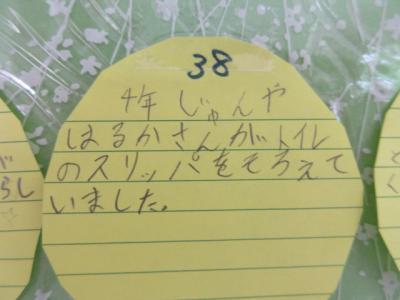 38
4年 じゅんや
はるかさんがトイレ
のスリッパをそろえて
いました。
が
らし
く